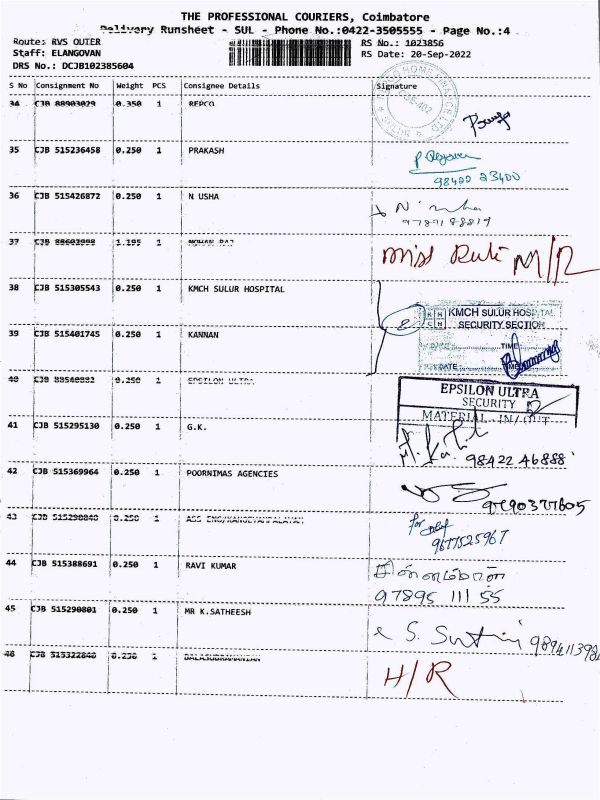 THE PROFESSIONAL COURIERS, Coimbatore
Delivery Runsheet - SUL - Phone No.:0422-3505555 - Page No.:4
Route: RVS OUTER
RS No.: 1023856
Staff: ELANGOVAN
RS Date: 20-Sep-2022
DRS No.: DCJB102385604
S No Consignment No Weight PCS Consignee Details Signature
34 CJB 88903029 0.350 1 REPCO
35 CJB 515236458 0.250 1 PRAKASH
98422 23400
36 CJB 515426872 0.250 1 N USHA
9789188819
37 CJB 88603998 1.195 1 MOHAN RAJ
Miss Rute M/R
38 CJB 515305543 0.250 1 KMCH SULUR HOSPITAL
KMCH SULUR HOSPITAL
SECURITY SECTION
39 CJB 515401745 0.250 1 KANNAN
2
TIME
DATE
40 CJB 88540882 0.250 1 EPSILON ULTRA
EPSILON ULTRA
SECURITY
MATERIAL IN/OUT
41 CJB 515295130 0.250 1 G.K.
98422 46888
42 CJB 515369964 0.250 1 POORNIMAS AGENCIES
9790377605
43 CJB 515290840 0.250 1 ASS ENG/KANGEYAMPALAYAM
for
9677525967
44 CJB 515388691 0.250 1 RAVI KUMAR
97895 111 55
45 CJB 515290801 0.250 1 MR K.SATHEESH
46 CJB 515322840 0.250 1 BALASUBRAMANIAN
H/R